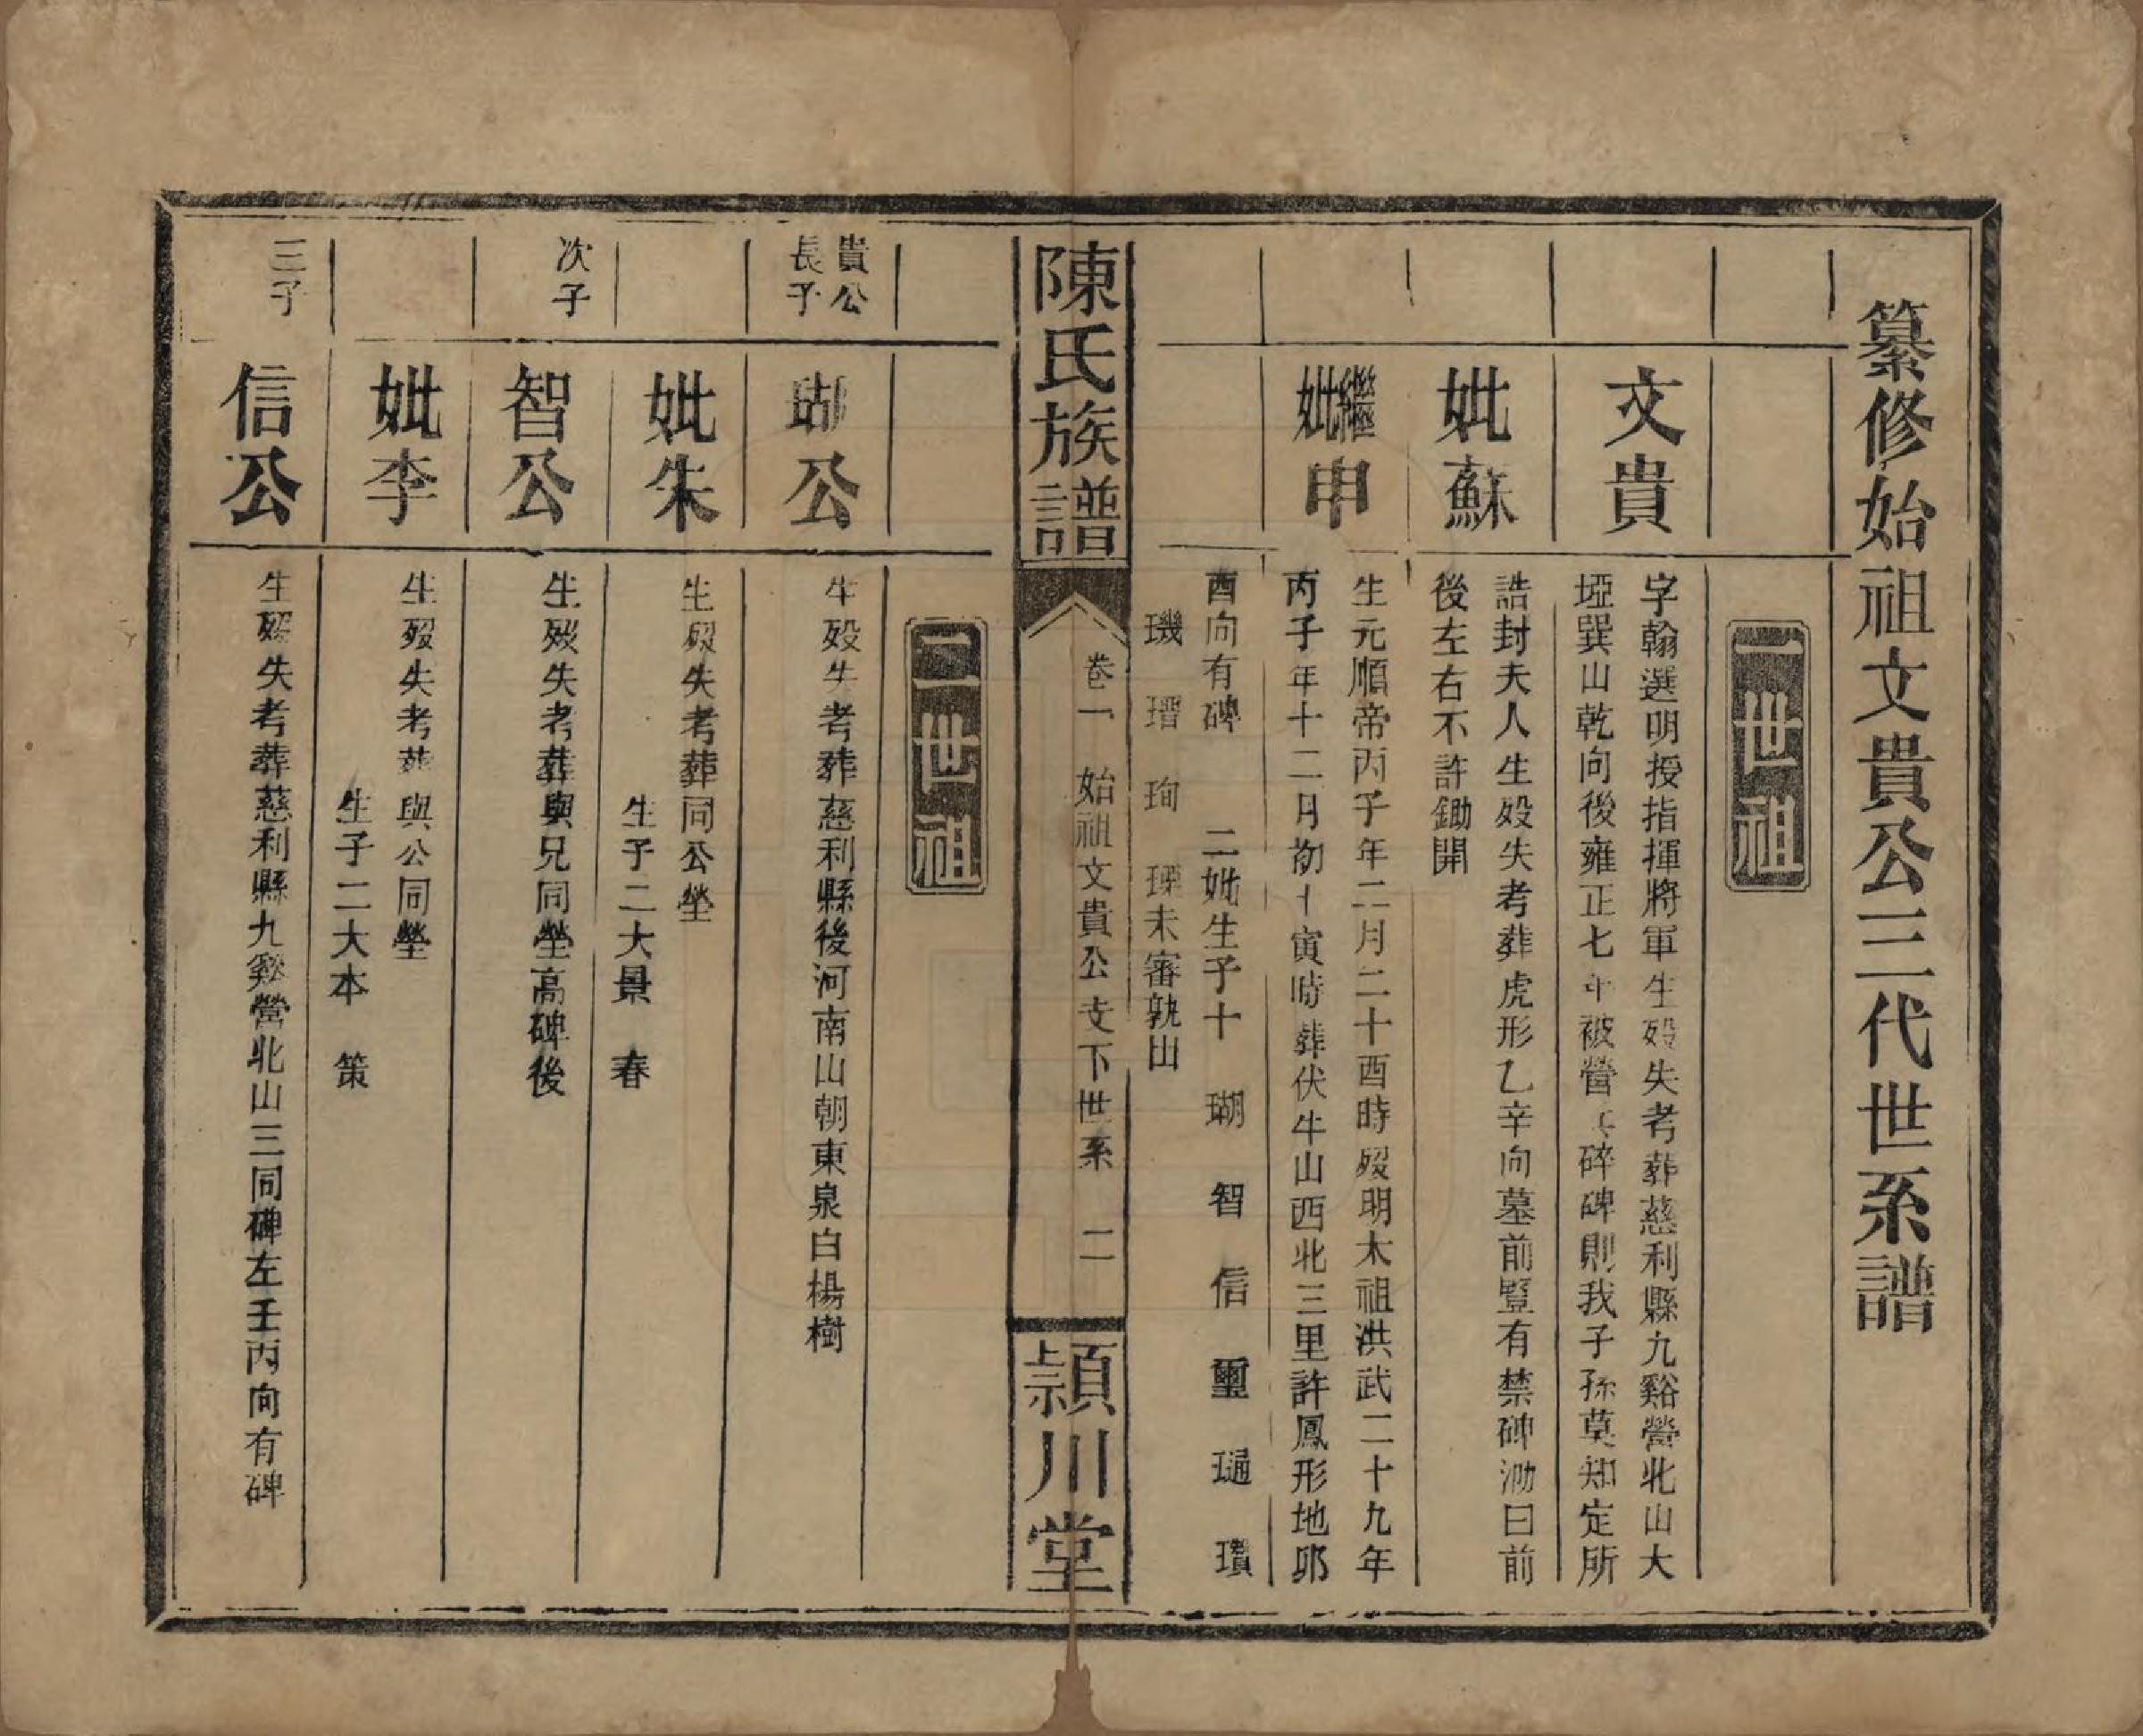 纂修始祖文貴公三代世系譜
一世祖
文貴
字翰選明授指揮將軍生歿失考葬慈利縣九谿營北山大
埡巽山乾向後雍正七年被營兵碎碑則我子孫莫知定所
妣蘇
誥封夫人生歿失考葬虎形乙辛向墓前豎有禁碑泐曰前
後左右不許鋤開
繼妣申
生元順帝丙子年二月二十酉時歿明太祖洪武二十九年
丙子年十二月初十寅時葬伏牛山西北三里許鳳形地卯
酉向有碑 二妣生子十 瑚 智 信 璽 璡 瓚
璣 瑨 珣 瑮未審孰出
陳氏族譜
卷一 始祖文貴公支下世系 二
潁川堂
二世祖
貴公
長子
瑚公
生歿失考葬慈利縣後河南山朝東泉白楊樹
妣朱
生歿失考葬同公塋
生子二大景 春
次子
智公
生歿失考葬與兄同塋高碑後
妣李
生歿失考葬與公同塋
生子二大本 策
三子
信公
生歿失考葬慈利縣九谿營北山三同碑左壬丙向有碑